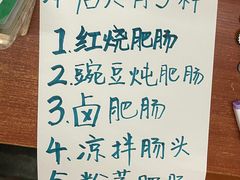 1.红烧肥肠
2.豌豆炖肥肠
3.卤肥肠
4.凉拌肠头
5.粉蒸肥肠